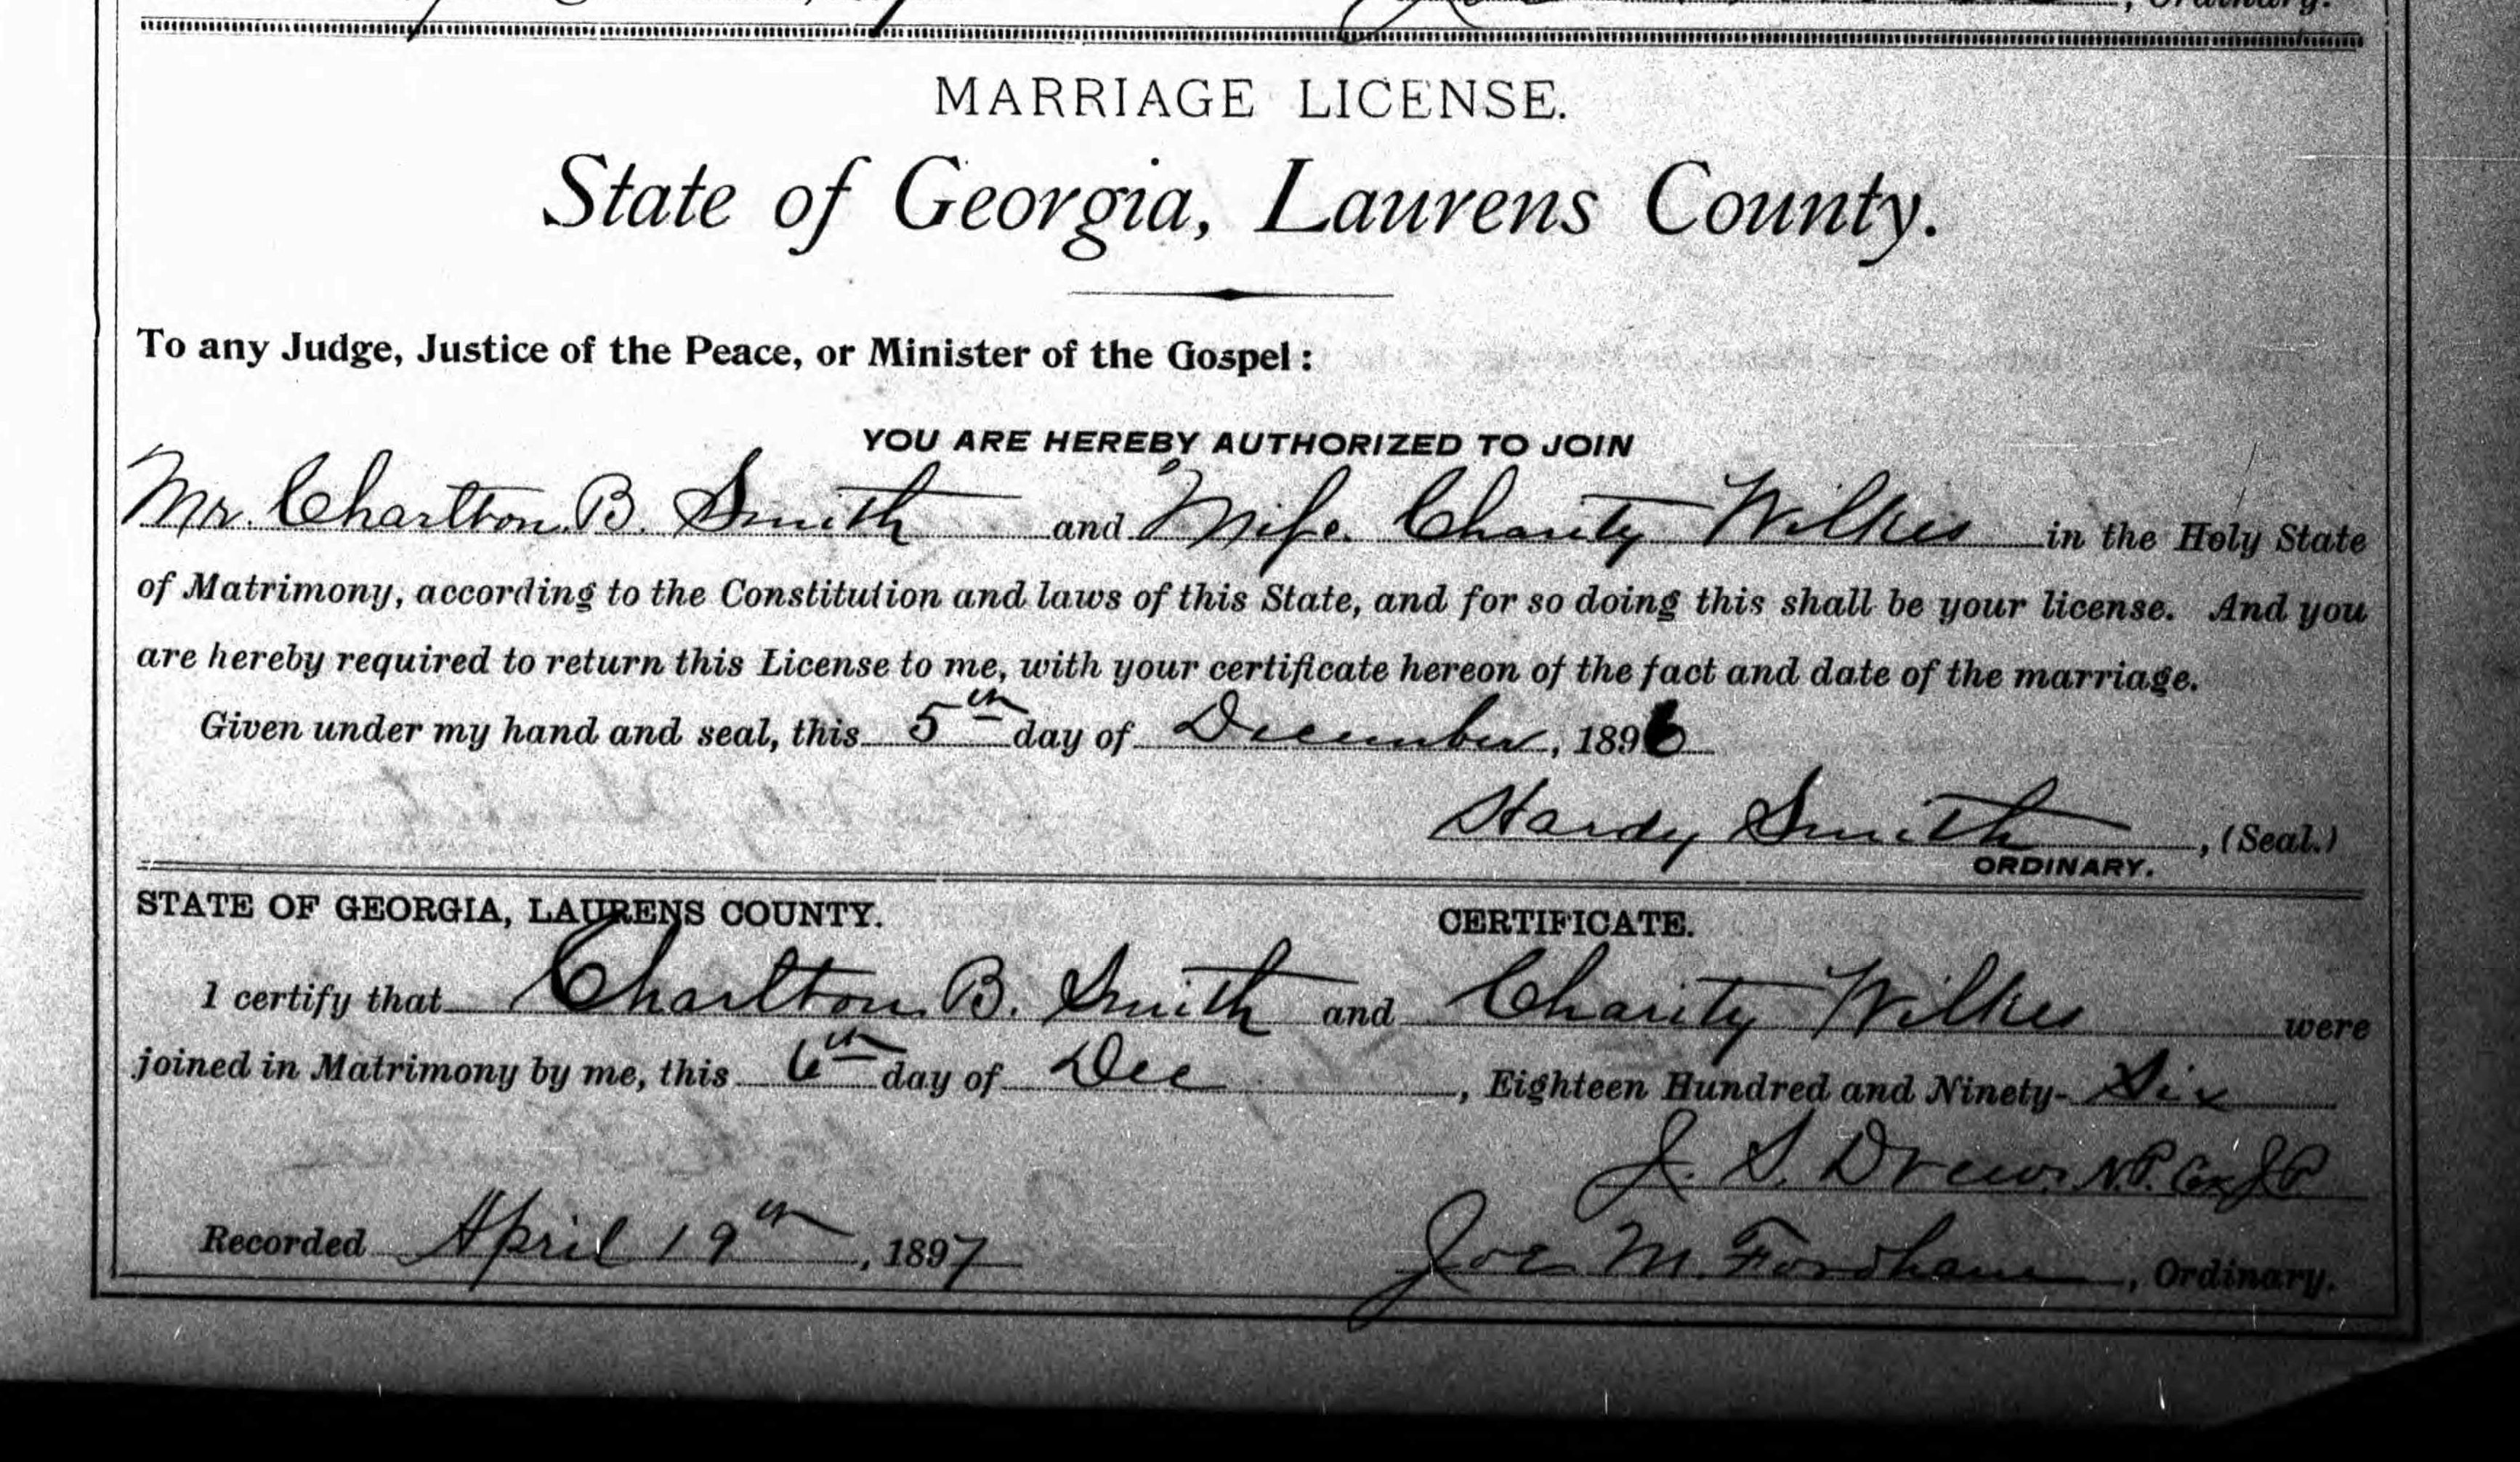 , Ordinary.
MARRIAGE LICENSE.
State of Georgia, Laurens County.
To any Judge, Justice of the Peace, or Minister of the Gospel:
YOU ARE HEREBY AUTHORIZED TO JOIN
Mr. Charlton B. Smith and Miss. Charity Wilkes in the Holy State
of Matrimony, according to the Constitution and laws of this State, and for so doing this shall be your license. And you
are hereby required to return this License to me, with your certificate hereon of the fact and date of the marriage.
Given under my hand and seal, this 5th day of December, 1896
Hardy Smith, (Seal.)
ORDINARY.
STATE OF GEORGIA, LAURENS COUNTY. CERTIFICATE.
I certify that Charlton B. Smith and Charity Wilkes were
joined in Matrimony by me, this 6th day of Dec, Eighteen Hundred and Ninety-Six
J. S. Drew. N.P. Ex J.P.
Recorded April 19th, 1897 Joe M. Fordham, Ordinary.